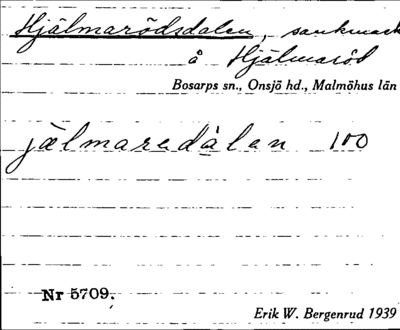 Hjälmarödsdalen, sankmark
å Hjälmaröd
Bosarps sn., Onsjö hd., Malmöhus län
jälmaredàlen 100
Nr 5709.
Erik W. Bergenrud 1939